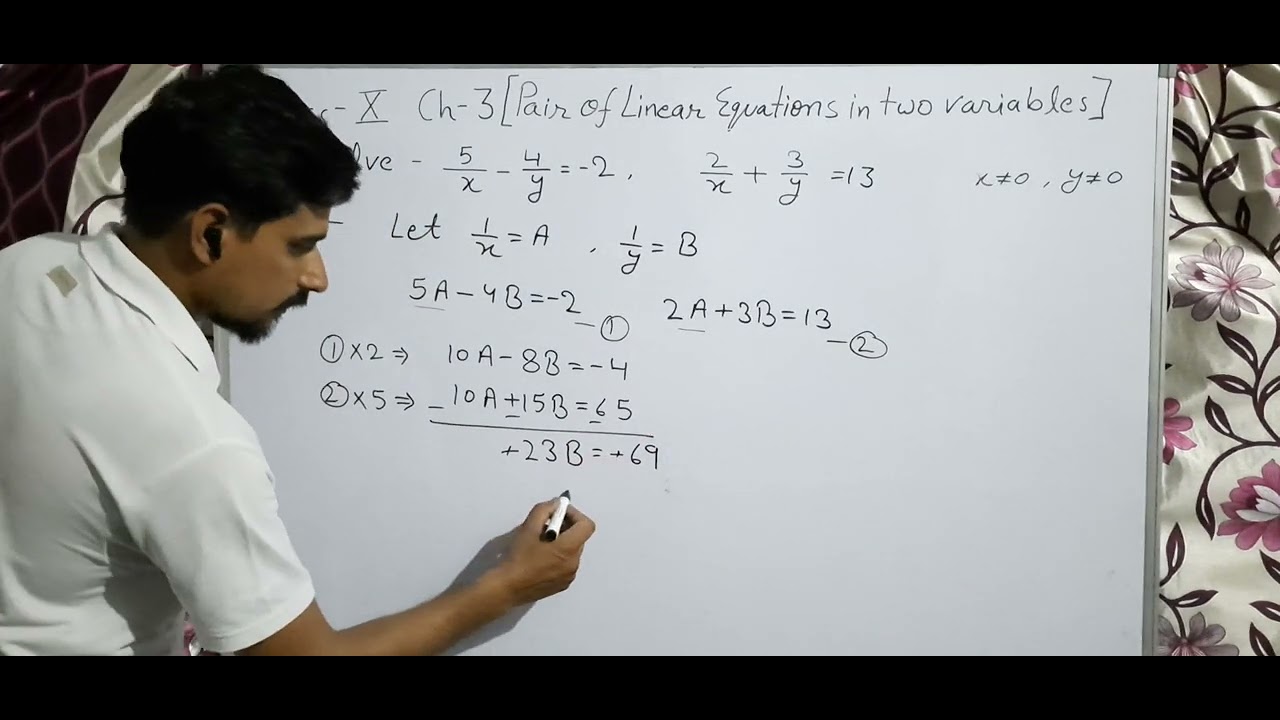 - X Ch-3 [Pair of Linear Equations in two variables]
- 5/x - 4/y = -2 , 2/x + 3/y = 13 x≠0 , y≠0
- Let 1/x = A , 1/y = B
5A - 4B = -2 - ① 2A + 3B = 13 - ②
① × 2 ⇒ 10A - 8B = -4
② × 5 ⇒ 10A + 15B = 65
- - -
+23B = +69